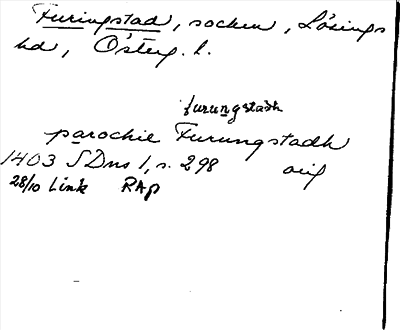 Furingstad, socken, Lösings
hd, Österg. l.
furungstadh
parochie Furungstadh
1403 SDns 1, s. 298 orig
28/10 Link RAp